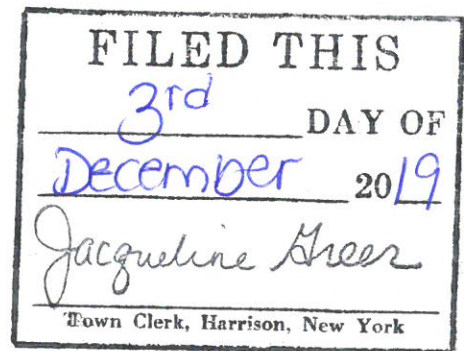 FILED THIS
3rd DAY OF
December 2019
Jacqueline Greer
Town Clerk, Harrison, New York